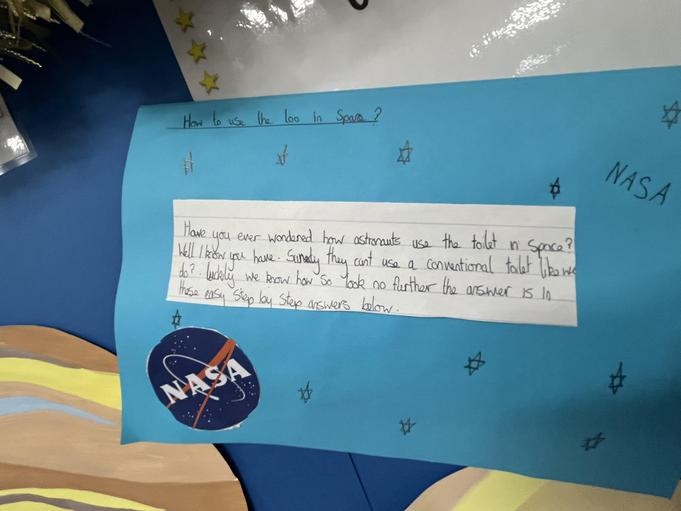 How to use the loo in Space?
NASA
Have you ever wondered how astronauts use the toilet n Space?
Well I know you have. Surely they cant use a conventional toilet like we
do? luckely we know how so look no further the answer is in
these easy step by step answers below.
NASA